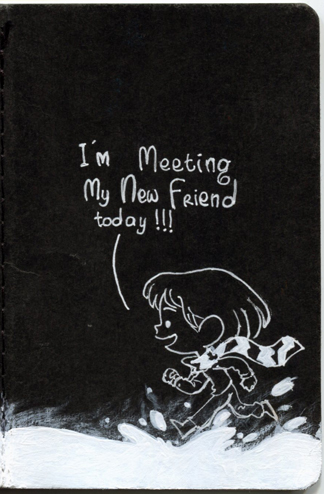 I'm Meeting
My New Friend
today !!!